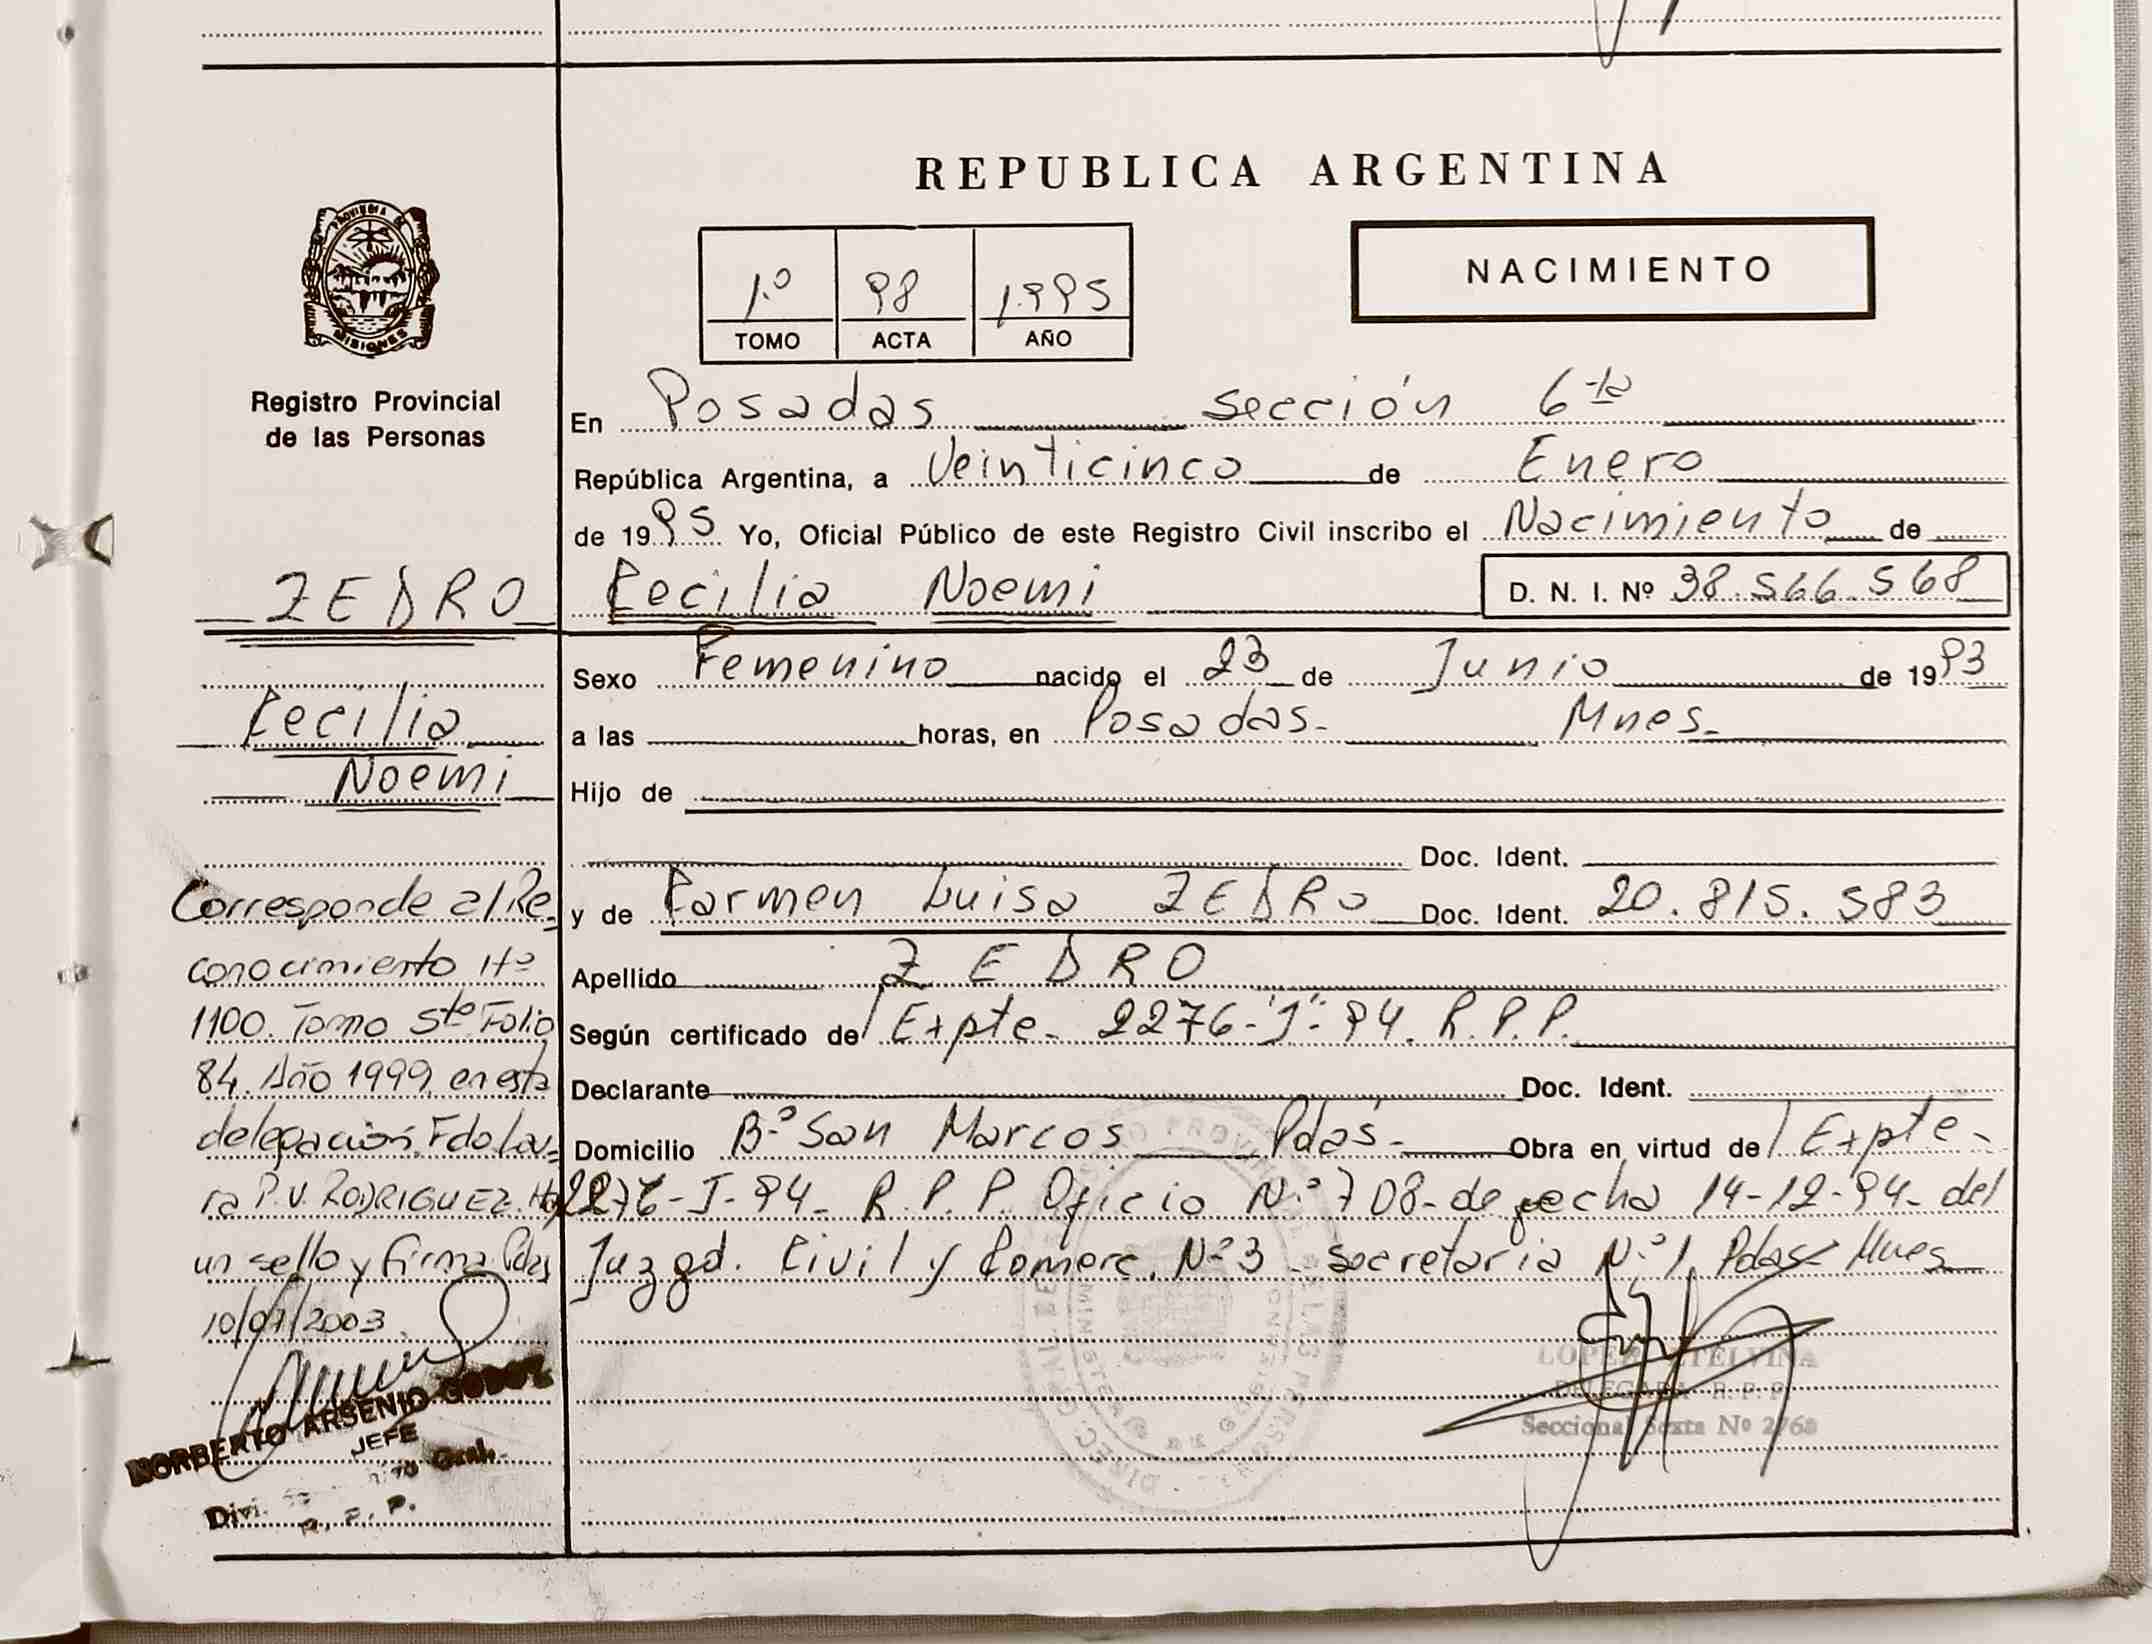 REPUBLICA ARGENTINA
PROVINCIA DE
MISIONES
1º 98 1.995
TOMO ACTA AÑO
NACIMIENTO
Registro Provincial
de las Personas
En Posadas sección 6ta
República Argentina, a Veinticinco de Enero
de 1995 Yo, Oficial Público de este Registro Civil inscribo el Nacimiento de
ZEDRO Cecilia Noemi D. N. I. Nº 38.566.568
Sexo Femenino nacido el 23 de Junio de 1993
Cecilia
a las horas, en Posadas- Mnes-
Noemi
Hijo de
Doc. Ident.
y de Carmen Luisa ZEDRO Doc. Ident. 20.815.583
Apellido ZEDRO
Según certificado de Expte- 2276-"J"-94. R.P.P.
Declarante Doc. Ident.
Domicilio B-º San Marcos Pdas- Obra en virtud de Expte-
2276-J-94- R.P.P. Oficio N-º 708- de fecha 14-12-94- del
Juzgd. Civil y Comerc. N-º 3 - secretaria N-º 1 Pdas- Mnes
Corresponde al Re-
conocimiento Nº
1100. Tomo 5to Folio
84. Año 1999, en esta
delegación. Fdo Lau-
ra P.V. RODRIGUEZ. Hay
un sello y firma. Pdas
10/07/2003
NORBERTO ARSENIO GODOY
JEFE
Gral.
R. P. P.
LOPEZ ETELVINA
DELEGADA R. P. P.
Seccional Sexta Nº 2768